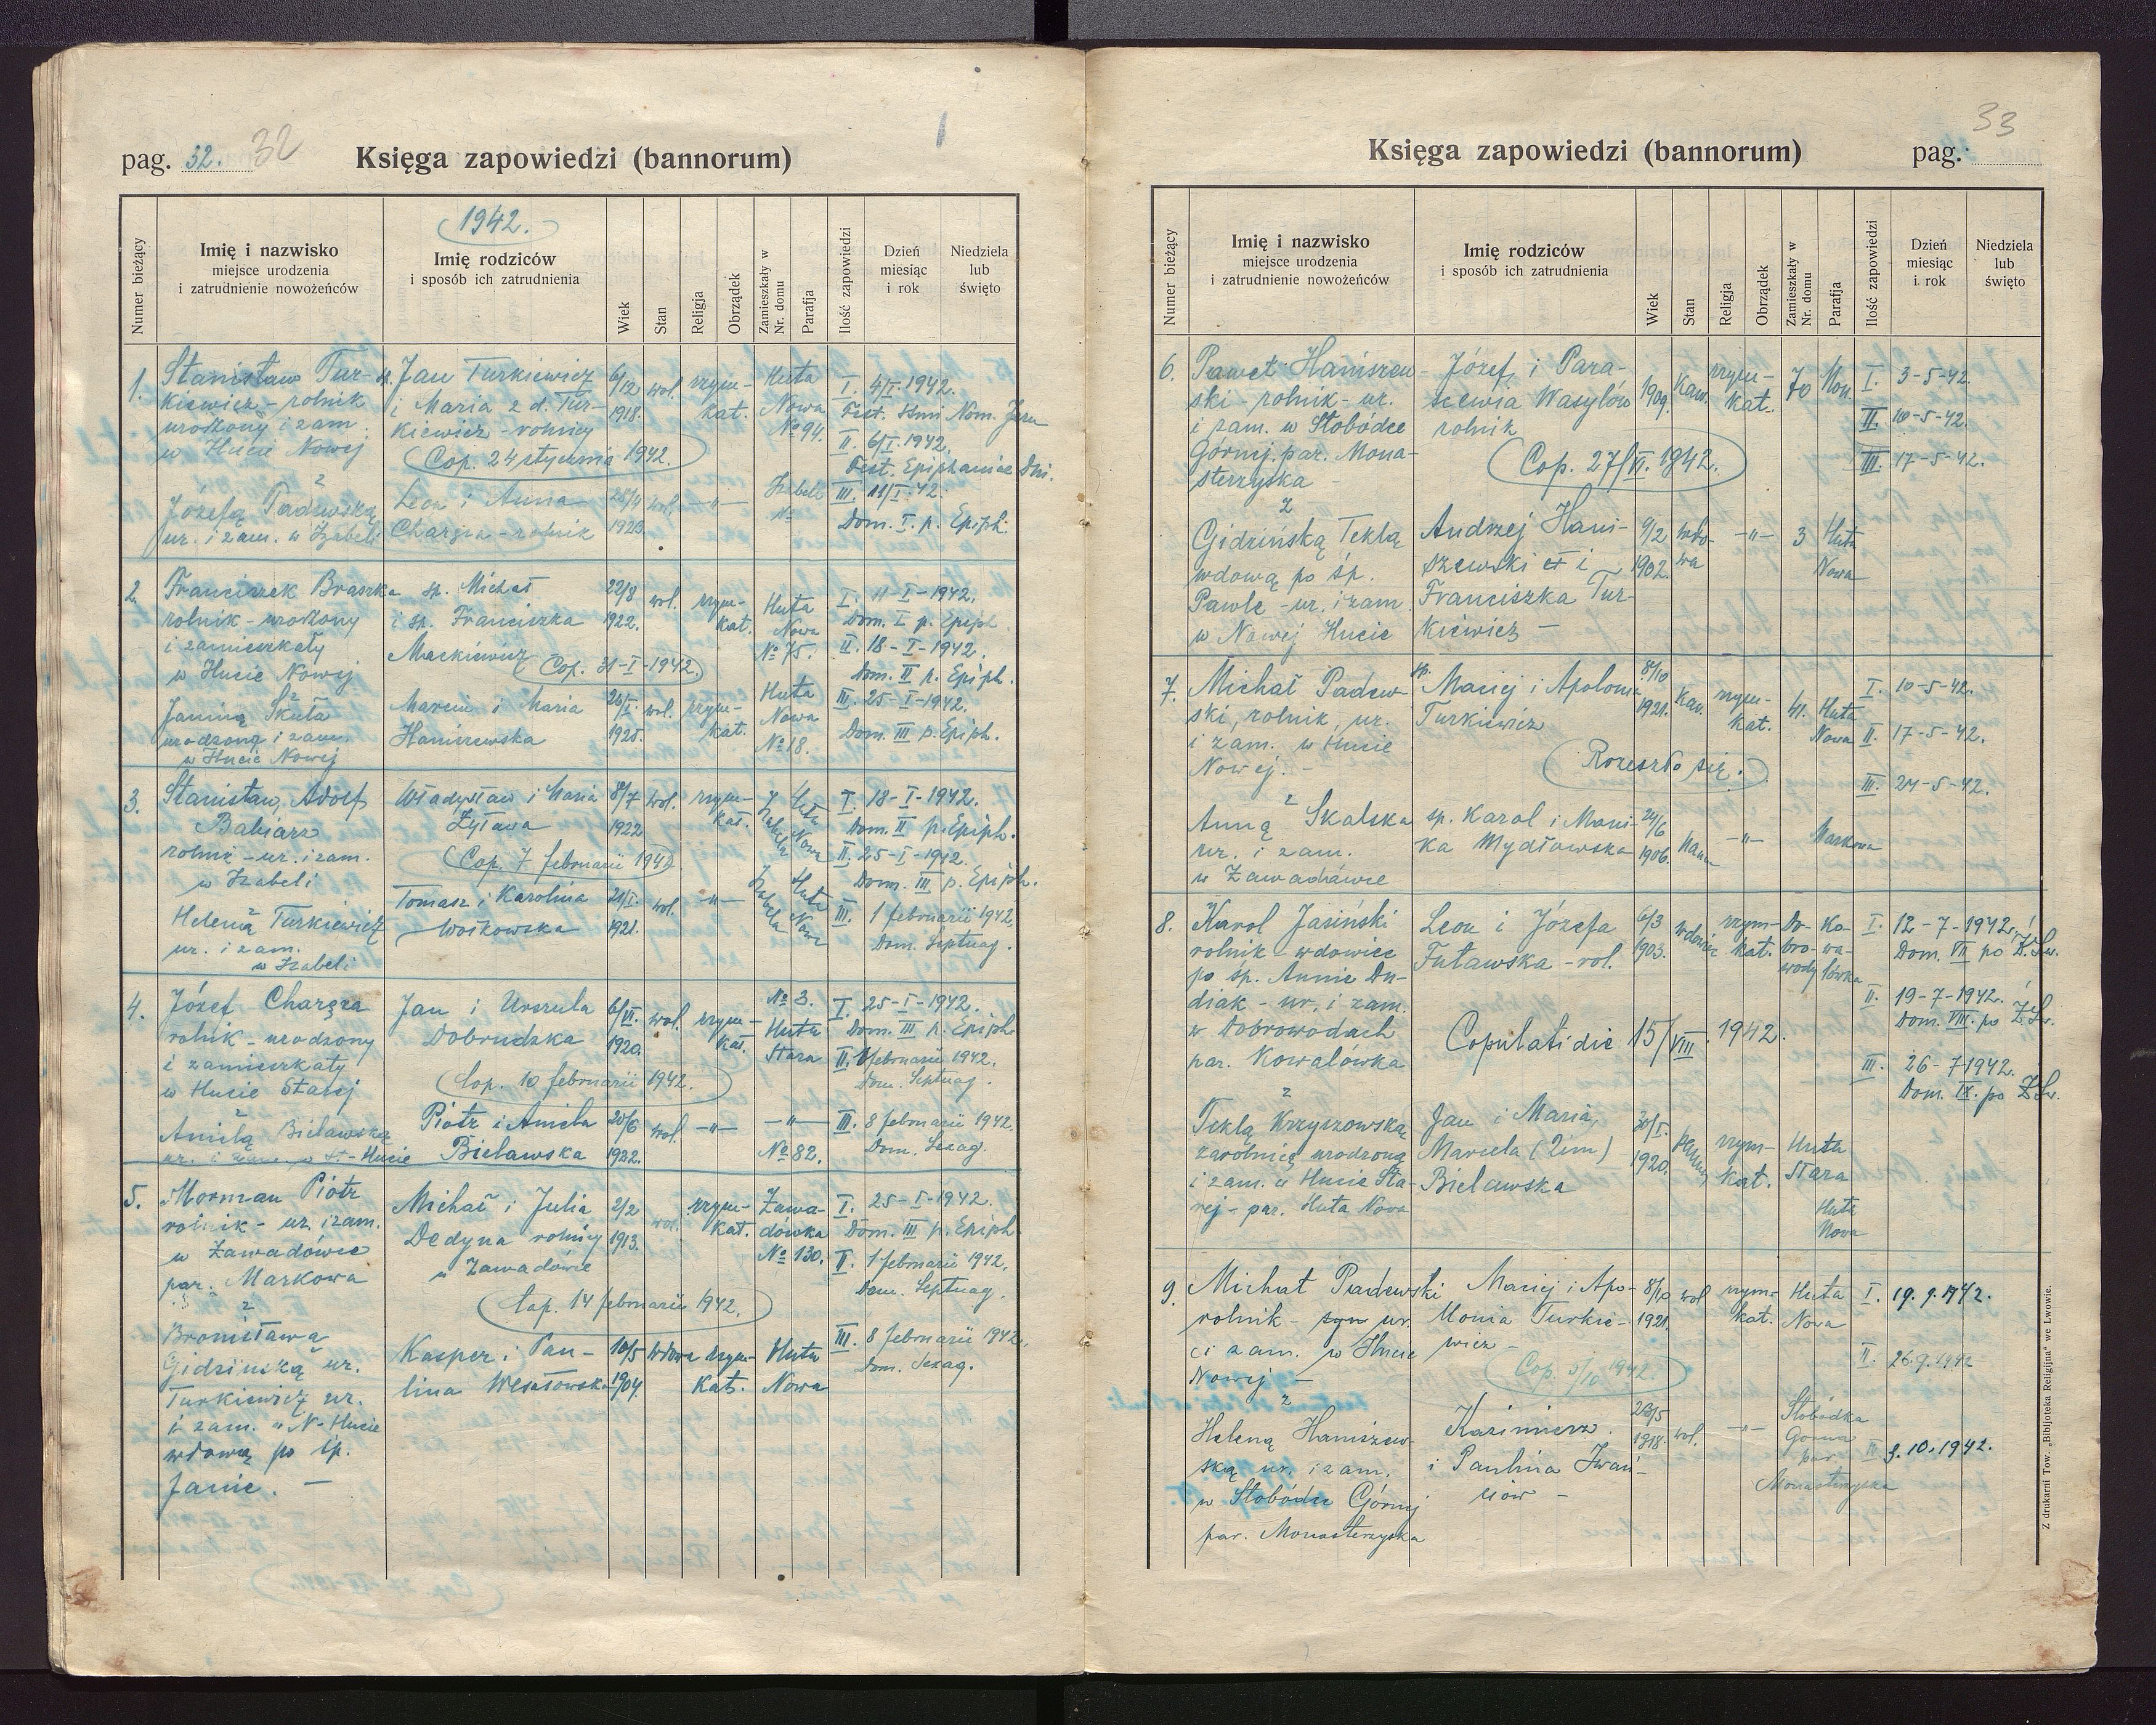 pag. 32. 32
Księga zapowiedzi (bannorum)
1942.
Numer bieżący
Imię i nazwisko
miejsce urodzenia
i zatrudnienie nowożeńców
Imię rodziców
i sposób ich zatrudnienia
Wiek
Stan
Religja
Obrządek
Zamieszkały w
Nr. domu
Parafja
Ilość zapowiedzi
Dzień
miesiąc
i rok
Niedziela
lub
święto
1. Stanisław Tur-
kiewicz - rolnik
urodzony i zam.
w Hucie Nowej
Jan Turkiewicz
i Maria z d. Tur-
kiewicz - rolnicy
Cop. 24 stycznia 1942.
6/12
1918.
wol.
rzym-
kat.
Huta
Nowa
№ 94.
I. 4/I 1942.
Fest. Ssmi Nom. Jesu
II. 6/I. 1942.
Fest. Epiphaniae Dni.
z
Józefą Padewską
ur. i zam. w Izabeli
Leon i Anna
Chargza - rolnik
1923.
wol.
-"-
Izabela
№
III. 11/I. 42.
Dom. I. p. Epiph.
2. Franciszek Braszka
rolnik - urodzony
i zamieszkały
w Hucie Nowej
sp. Michał
i sp. Franciszka
Mackiewicz
Cop. 31-I-1942.
22/8
1922.
wol.
rzym-
kat.
Huta
Nowa
№ 75.
I. 11-I-1942.
Dom. I p. Epiph.
II. 18-I-1942.
Dom. II p. Epiph.
z
Janiną Skuta
urodzoną i zam.
w Hucie Nowej
Marcin i Maria
Haniszewska
26/I.
1925.
wol.
rzym-
kat.
Huta
Nowa
№ 18.
III. 25-I-1942.
Dom. III p. Epiph.
3. Stanisław, Adolf
Babiarz
rolnik - ur. i zam.
w Izabeli
Władysław i Maria
Żyława
Cop. 7 februarii 1942
8/7
1922
wol.
rzym-
kat.
Izabela
Huta Nowa
I. 18-I-1942.
Dom. II p. Epiph.
II. 25-I-1942.
Dom. III p. Epiph.
z
Heleną Turkiewicz
ur. i zam.
w Izabeli
Tomasz i Karolina
Wołkowska
21/I.
1921.
wol.
-"-
Izabela
Huta Nowa
III. 1 februarii 1942.
Dom. Septuag.
4. Józef Chargza
rolnik - urodzony
i zamieszkały
w Hucie Starej
Jan i Urszula
Dobrudzka
Cop. 10 februarii 1942.
6/VI.
1920.
wol.
rzym-
kat.
№ 3.
Huta
Stara
I. 25-I-1942.
Dom. III p. Epiph.
II. 1 februarii 1942.
Dom. Septuag.
z
Anielą Bielawską
ur. i zam. w St. Hucie
Piotr i Aniela
Bielawska
20/6
1922.
wol.
-"-
-"-
№ 82.
III. 8 februarii 1942.
Dom. Sexag.
5. Morman Piotr
rolnik - ur. i zam.
w Zawadówce
par. Markowa
Michał i Julia
Dedyna rolnicy
w Zawadówce
Cop. 14 februarii 1942.
2/2
1913.
wol.
rzym-
kat.
Zawa-
dówka
№ 130.
I. 25-I-1942.
Dom. III p. Epiph
II. 1 februarii 1942.
Dom. Septuag.
z
Bronisławą
Gidzińską ur.
Turkiewicz ur.
i zam. w N. Hucie
wdową po śp.
Janie. -
Kasper i Pau-
lina Wesołowska
10/5
1904.
wdowa
rzym-
kat.
Huta
Nowa
III. 8 februarii 1942.
Dom. Sexag.
33
Księga zapowiedzi (bannorum)
pag.
Numer bieżący
Imię i nazwisko
miejsce urodzenia
i zatrudnienie nowożeńców
Imię rodziców
i sposób ich zatrudnienia
Wiek
Stan
Religja
Obrządek
Zamieszkały w
Nr. domu
Parafja
Ilość zapowiedzi
Dzień
miesiąc
i rok
Niedziela
lub
święto
6. Paweł Haniszew-
ski - rolnik - ur.
i zam. w Słobódce
Górnej par. Mona-
sterzyska -
Józef i Para-
scewia Wasylów
rolnik
Cop. 27/VI. 1942.
1909.
Kaw.
rzym-
kat.
70
Mon.
I. 3-5-42.
II. 10-5-42.
III. 17-5-42.
z
Gidzińską Teklą
wdową po śp.
Pawle - ur. i zam.
w Nowej Hucie
Andrzej Hani-
szewski i
Franciszka Tur-
kiewicz -
9/2
1902.
wdo-
wa
-"-
3
Huta
Nowa
7. Michał Padew-
ski, rolnik, ur.
i zam. w Hucie
Nowej. -
sp. Maciej i Apolonia
Turkiewicz
Rozeszło się.
8/10
1921.
Kaw.
rzym-
kat.
41.
Huta
Nowa
I. 10-5-42.
II. 17-5-42.
III. 24-5-42.
z
Anną Skalską
ur. i zam.
w Zawadówce
sp. Karol i Mari-
ka Mydłowska
24/6
1906.
-"-
Markowa
8. Karol Jasiński
rolnik - wdowiec
po śp. Annie Du-
diak - ur. i zam.
w Dobrowodach
par. Kowalówka
Leon i Józefa
Futawska - rol.
Copulati die 15/VIII. 1942.
6/3
1903.
wdowiec
rzym-
kat.
Do-
bro-
wody
Ko-
wa-
lówka
I. 12-7-1942.
Dom. VII po Z. Św.
II. 19-7-1942.
Dom. VIII. po Z. Św.
III. 26-7-1942.
Dom. IX. po Z. Św.
z
Teklą Krzyszowską
zarobnicą urodzoną
i zam. w Hucie Sta-
rej - par. Huta Nowa
Jan i Maria,
Marcela (2im)
Bielawska
30/I.
1920.
panna
rzym-
kat.
Huta
Stara
Huta
Nowa
9. Michał Padewski
rolnik - syn ur.
i zam. w Hucie
Nowej -
Maciej i Apo-
lonia Turkie-
wicz -
Cop. 3/10 1942.
8/10
1921.
wol
rzym-
kat.
Huta
Nowa
I. 19.9.1942.
II. 26.9.1942
z
Heleną Haniszew-
ską ur. i zam.
w Słobódce Górnej
par. Monasterzyska
Kazimierz
i Paulina Iwań-
ciow -
23/5
1918.
wol.
-"-
Słobódka
Górna
par.
Monasterzyska
III. 3.10.1942.
Z drukarni Tow. „Bibljoteka Religijna" we Lwowie.